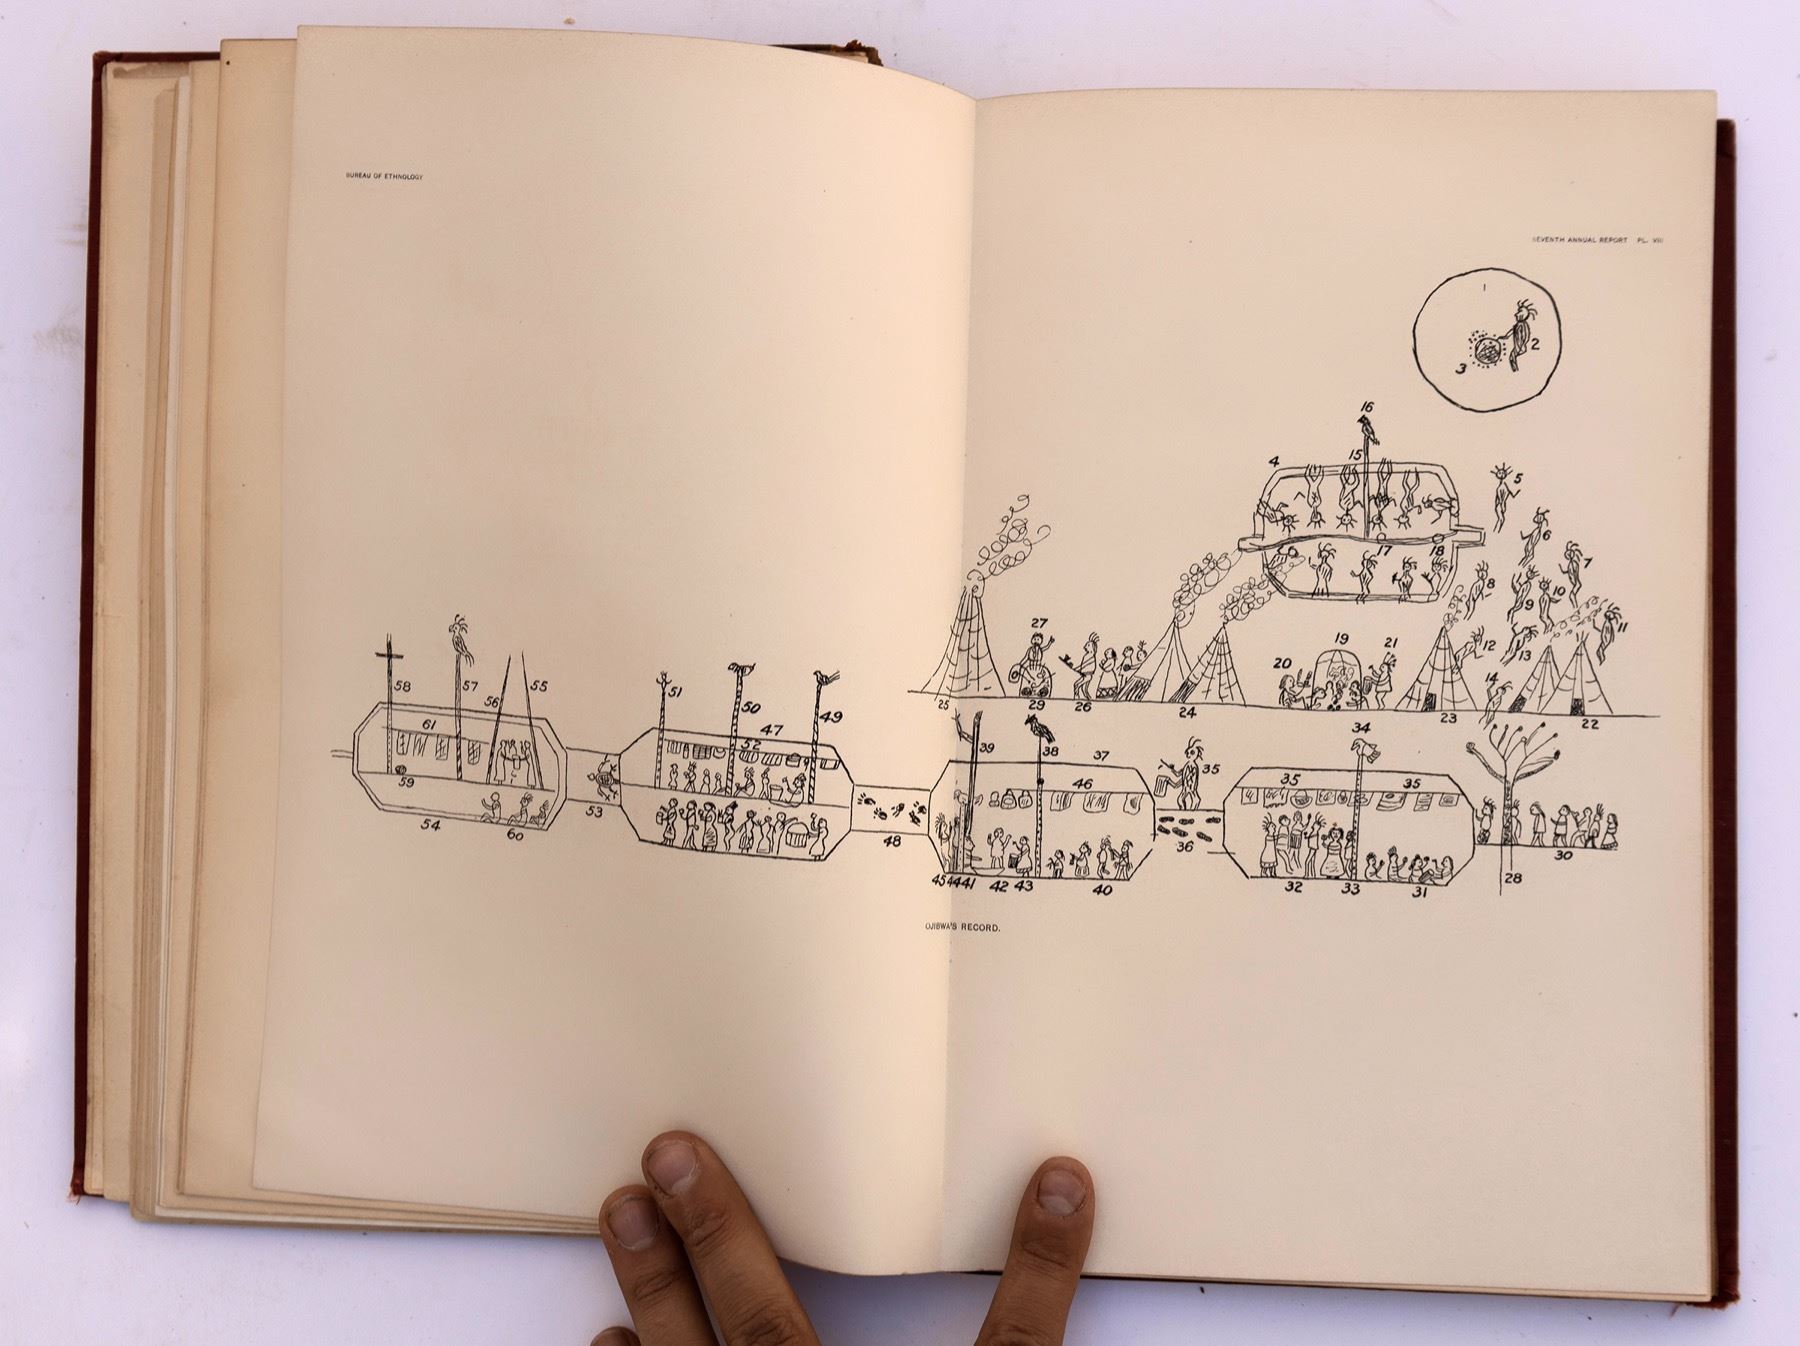 BUREAU OF ETHNOLOGY
SEVENTH ANNUAL REPORT PL. VIII
1
2
3
16
4
15
5
6
17
18
7
8
9
10
11
12
13
14
19
20
21
27
25
29
26
24
34
23
22
58
57
56
55
61
59
54
60
53
51
50
49
47
52
48
39
38
37
46
45
44
41
42
43
40
35
36
35
35
32
33
31
28
30
OJIBWA'S RECORD.